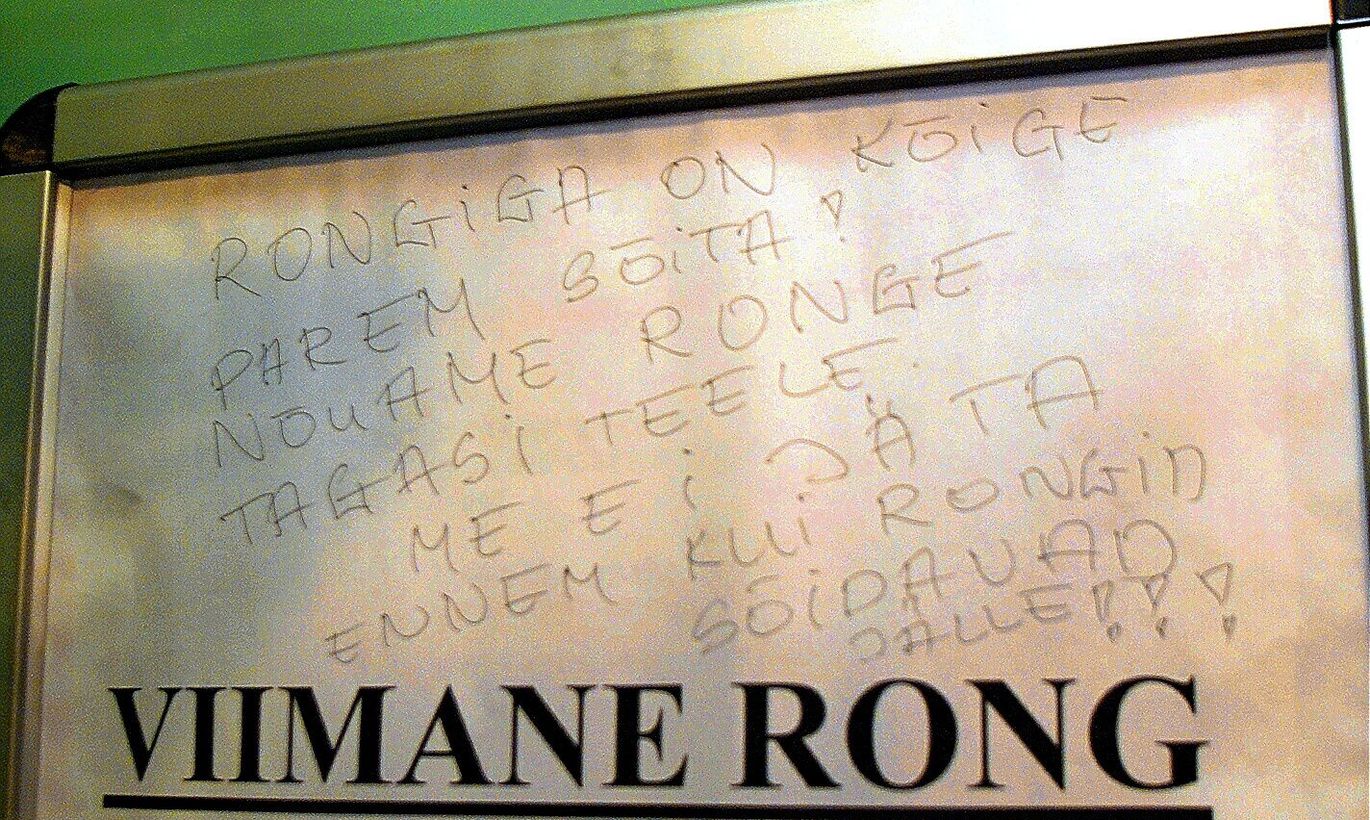 RONGiGA ON KÕiGE
PAREM SÕiTA!
NÕUAME RONGE
TAGASi TEELE.
ME Ei JÄTA
ENNEM KUi RONGiD
SÕiDAVAD
JÄLLE!!!
VIIMANE RONG